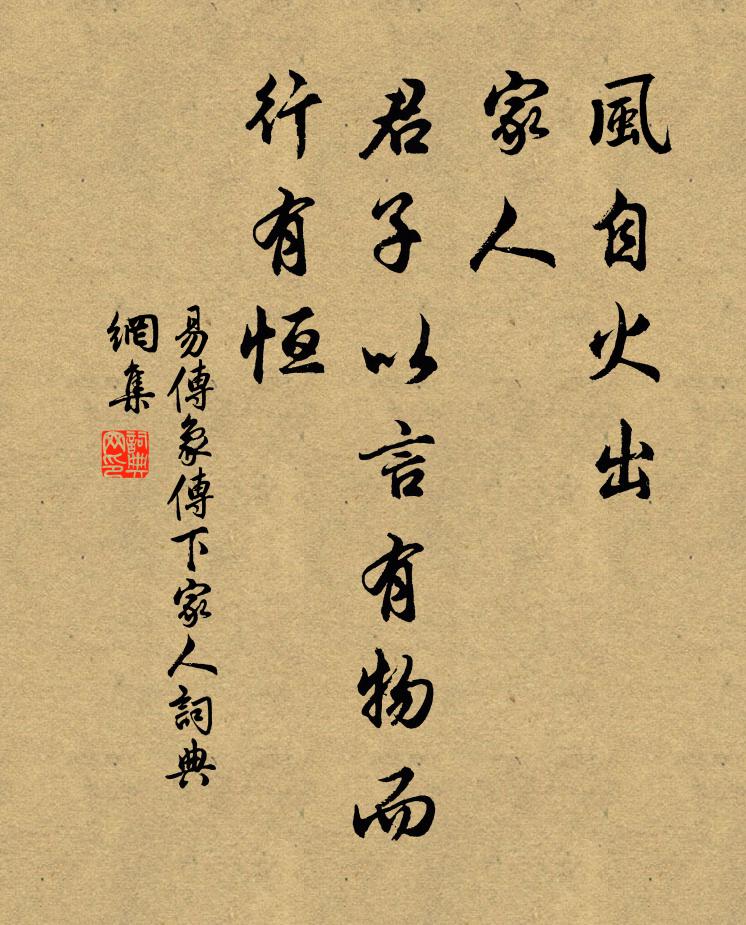 風自火出
家人
君子以言有物而
行有恒
易傳象傳下家人詞典
網集
詞典
网印